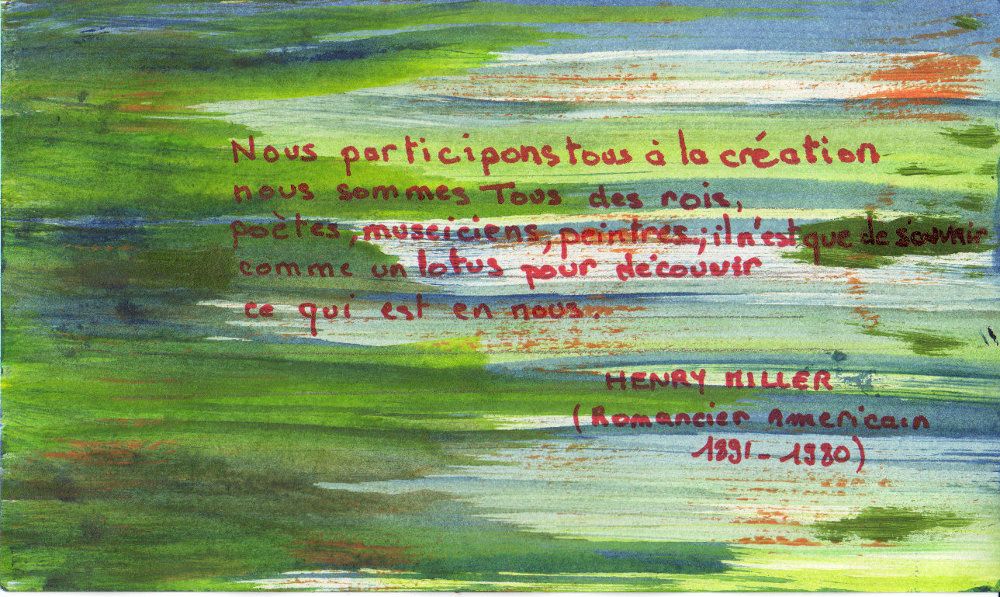 Nous participons tous à la création
nous sommes Tous des rois,
poètes, museiciens, peintres,; il n'est que de s'ouvrir
comme un lotus pour découvrir
ce qui est en nous.
HENRY MILLER
(Romancier Americain
1891-1980)